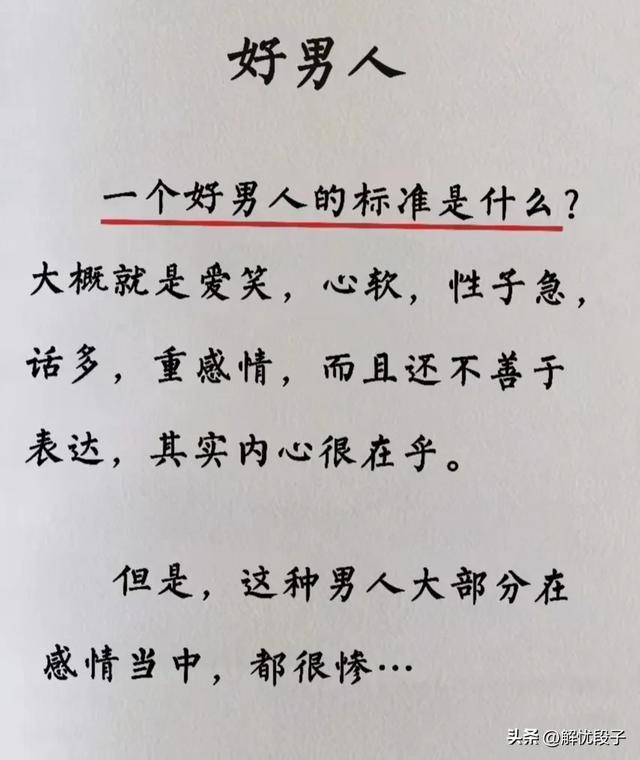 好男人
一个好男人的标准是什么？
大概就是爱笑，心软，性子急，
话多，重感情，而且还不善于
表达，其实内心很在乎。
但是，这种男人大部分在
感情当中，都很惨…
头条 @解忧段子